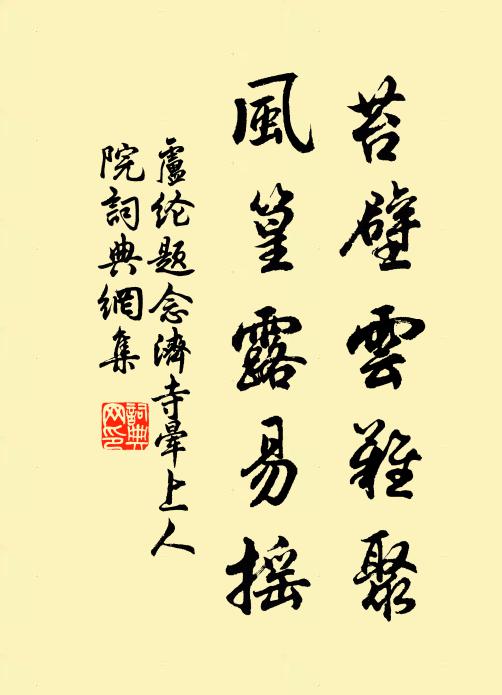 苔壁雲難聚
風篁露易搖
盧綸題念濟寺暈上人
院詞典網集
詞典
网印